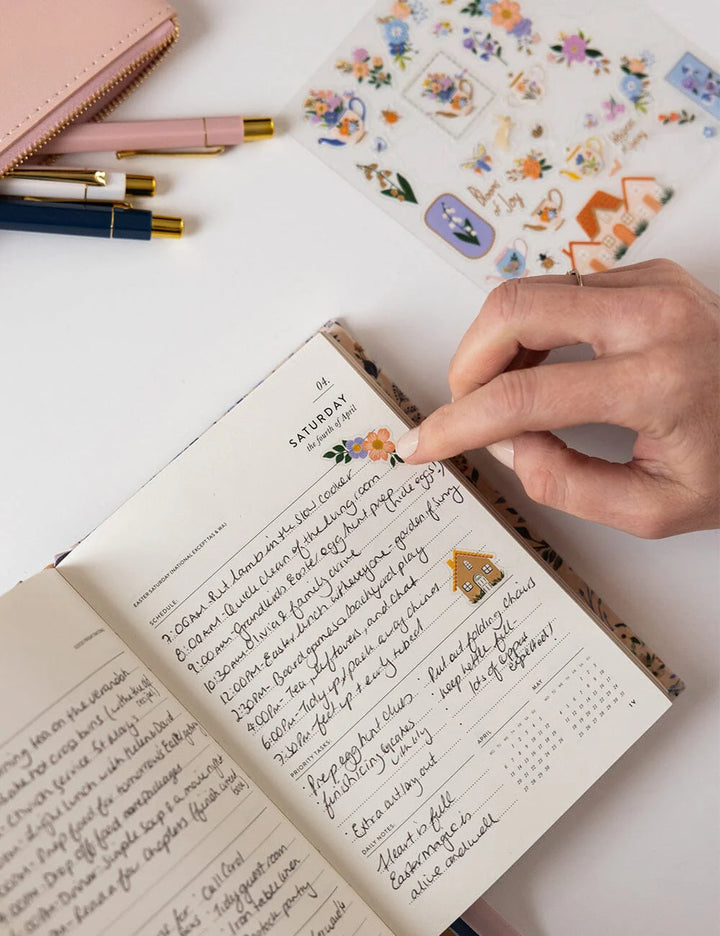 Bloom of Joy
04.
SATURDAY
the fourth of April
EASTER SATURDAY (NATIONAL EXCEPT TAS & WA)
SCHEDULE:
7:00AM - Put lamb in the slow cooker
8:00AM - Quick clean of the living room
9:00AM - Grandkids Easter egg hunt prep (hide eggs!)
10:30AM - Olivia & family arrive
12:00PM - Easter lunch with everyone - garden if sunny
2:30PM - Board games & backyard play
4:00PM - Tea, leftovers, and chat
6:00PM - Tidy up & pack away chairs
7:30PM - feet up & early to bed
PRIORITY TASKS:
· Prep egg hunt clues
· finish icing cupcakes
with lily
· Extra cutlery out
· Put out folding chairs
· Keep kettle full -
lots of cuppas
expected!
DAILY NOTES:
Heart is full
Easter magic is
alive and well
APRIL
MAY
IV
tea on the verandah
hot cross buns (with the old
recipe)
Church service St Mary's
light lunch with Helen & David
Prep food for tomorrow's Easter
Drop off food care packages
Dinner: simple soup & a movie night
Read a few chapters (finish
for: Call Carol
Tidy guest room
Iron table linen
pantry